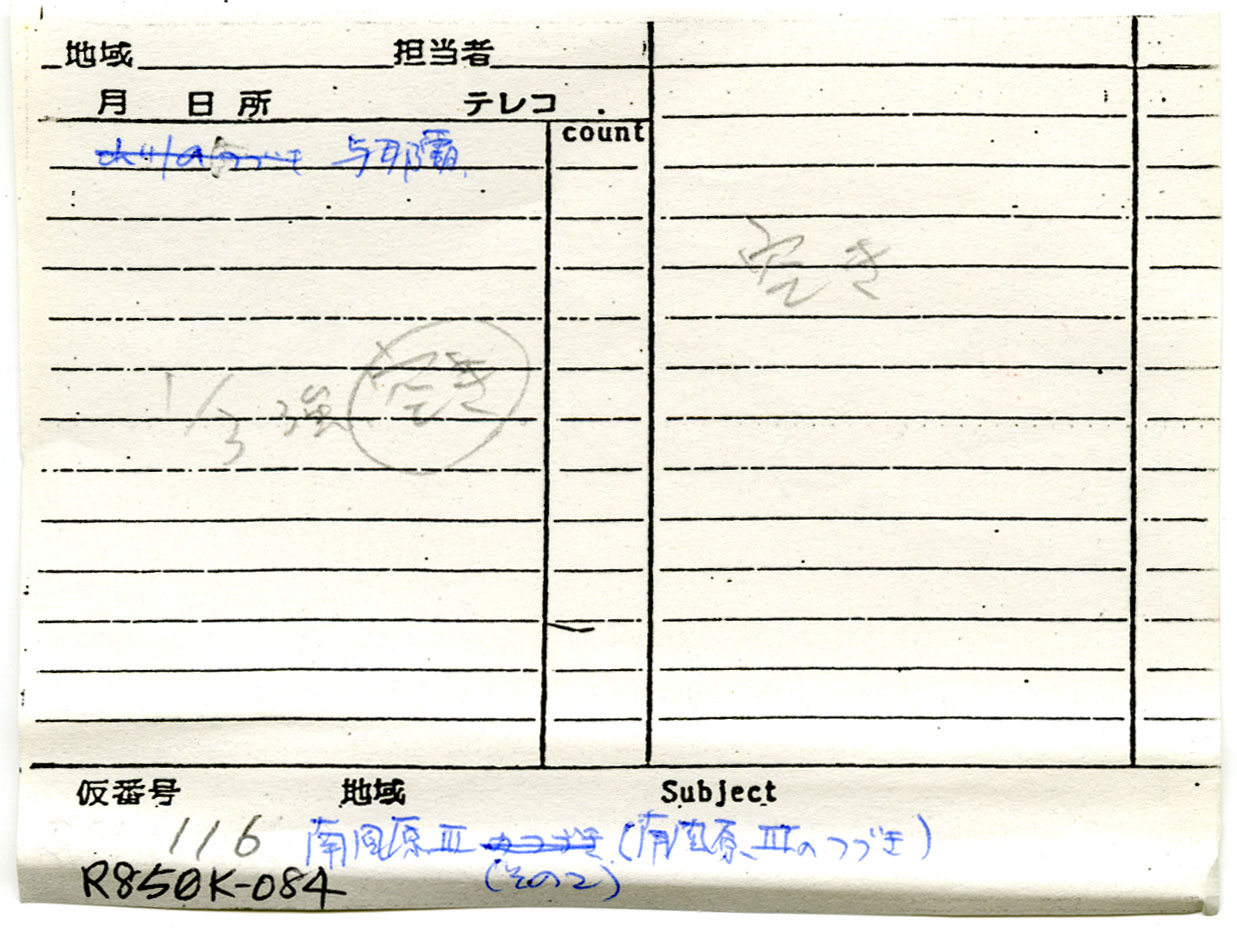 地域 担当者
月 日 所 テレコ
count
のつづき 与那覇
空き
1/3強 空き
仮番号 地域 Subject
116 南風原Ⅲ のつづき (南風原Ⅲのつづき)
(その2)
R850K-084